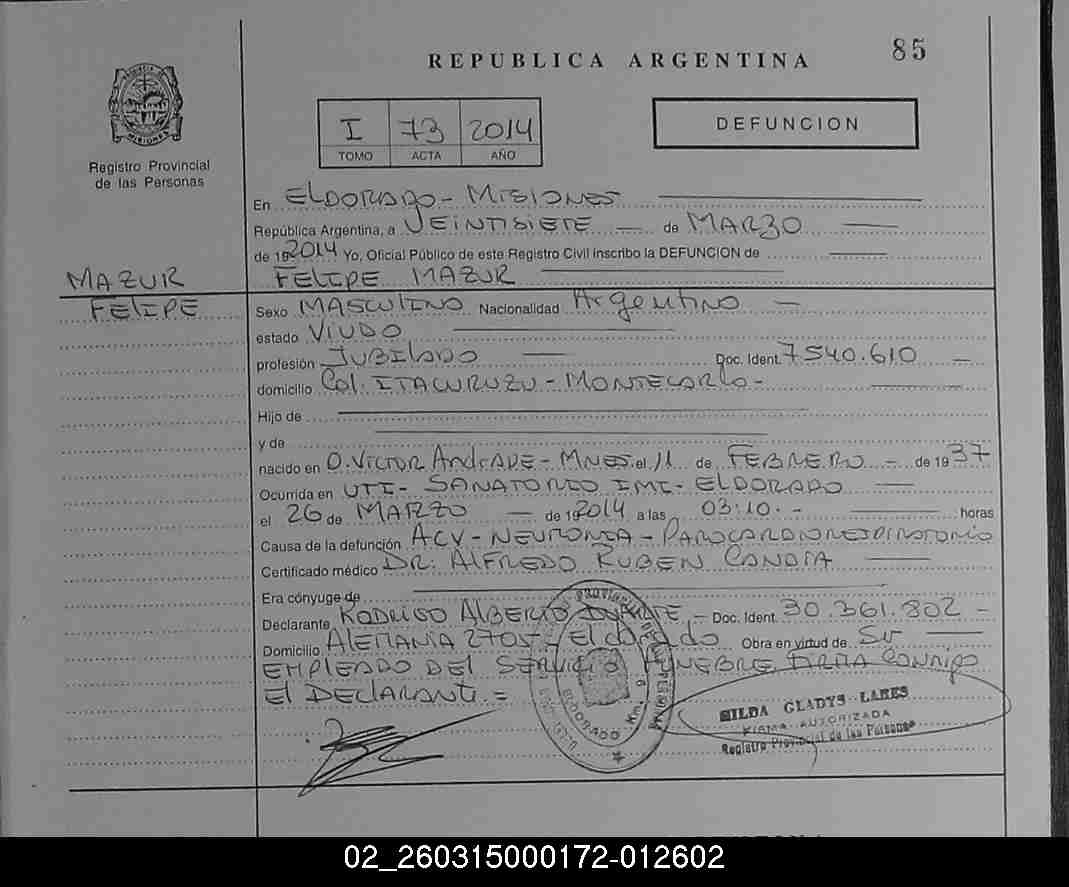 REPUBLICA ARGENTINA
85
PROVINCIA DE MISIONES
Registro Provincial
de las Personas
I 73 2014
TOMO ACTA AÑO
DEFUNCION
En ELDORADO - MISIONES
República Argentina, a VEINTISIETE — de MARZO
de 192014 Yo, Oficial Público de este Registro Civil inscribo la DEFUNCION de
MAZUR
FELIPE
FELIPE MAZUR
Sexo MASCULINO Nacionalidad Argentino —
estado VIUDO
profesión JUBILADO — Doc. Ident. 7540.610 —
domicilio Col. ITACURUZU - MONTECARLO -
Hijo de
y de
nacido en D. VICTOR AndrADE - MNES. el 11 de FEBRERO - de 1937
Ocurrida en UTI - SANATORIO IMI - ELDORADO
el 26 de MARZO — de 192014 a las 03:10 - horas
Causa de la defunción ACV - NEUMONIA - PAROCARDIORESPIRATORIO
Certificado médico DR: ALFREDO RUBEN CANDIA
Era cónyuge de
Declarante RODRIGO ALBERTO DUARTE, - Doc. Ident. 30.361.802 -
Domicilio ALEMANIA 2705 - Eldorado Obra en virtud de Su
EMPLEADO DEL SERVICIO FUNEBRE FIRMA CONMIGO
El DECLARANTE =
ELDORADO Km. 9
HILDA GLADYS LARES
FIRMA AUTORIZADA
Registro Provincial de las Personas
02_260315000172-012602